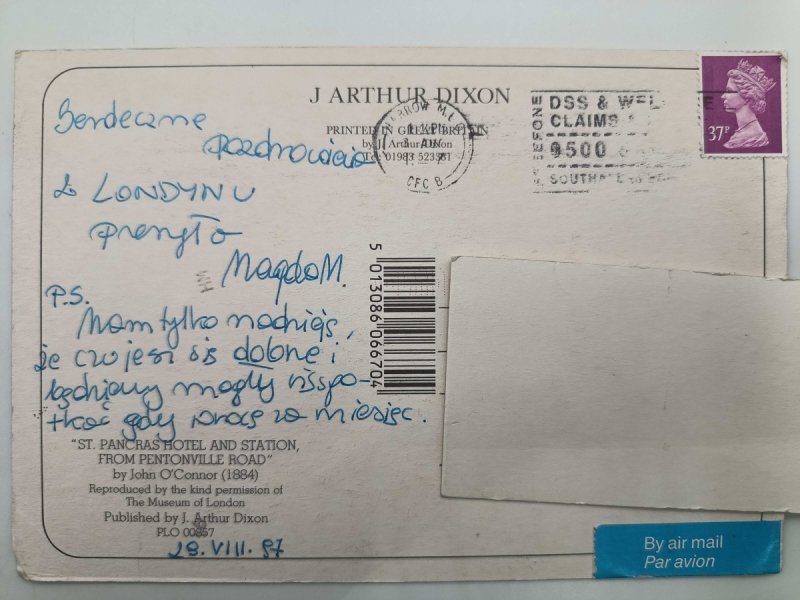 J ARTHUR DIXON
PRINTED IN GREAT BRITAIN
by J. Arthur Dixon
Tel: 01983 523381
HARROW
CFC B
DSS & WEL
CLAIMS
FREEFONE
9500
37P
Serdeczne
pozdrowienia
z LONDYNU
przesyła
Magda M.
P.S.
Mam tylko nadzieję,
że czujesz się dobrze i
będziemy mogły się spo-
tkać gdy wrócę za miesiąc.
5 013086 066704
"ST. PANCRAS HOTEL AND STATION,
FROM PENTONVILLE ROAD"
by John O'Connor (1884)
Reproduced by the kind permission of
The Museum of London
Published by J. Arthur Dixon
PLO 00857
29.VIII.97
By air mail
Par avion